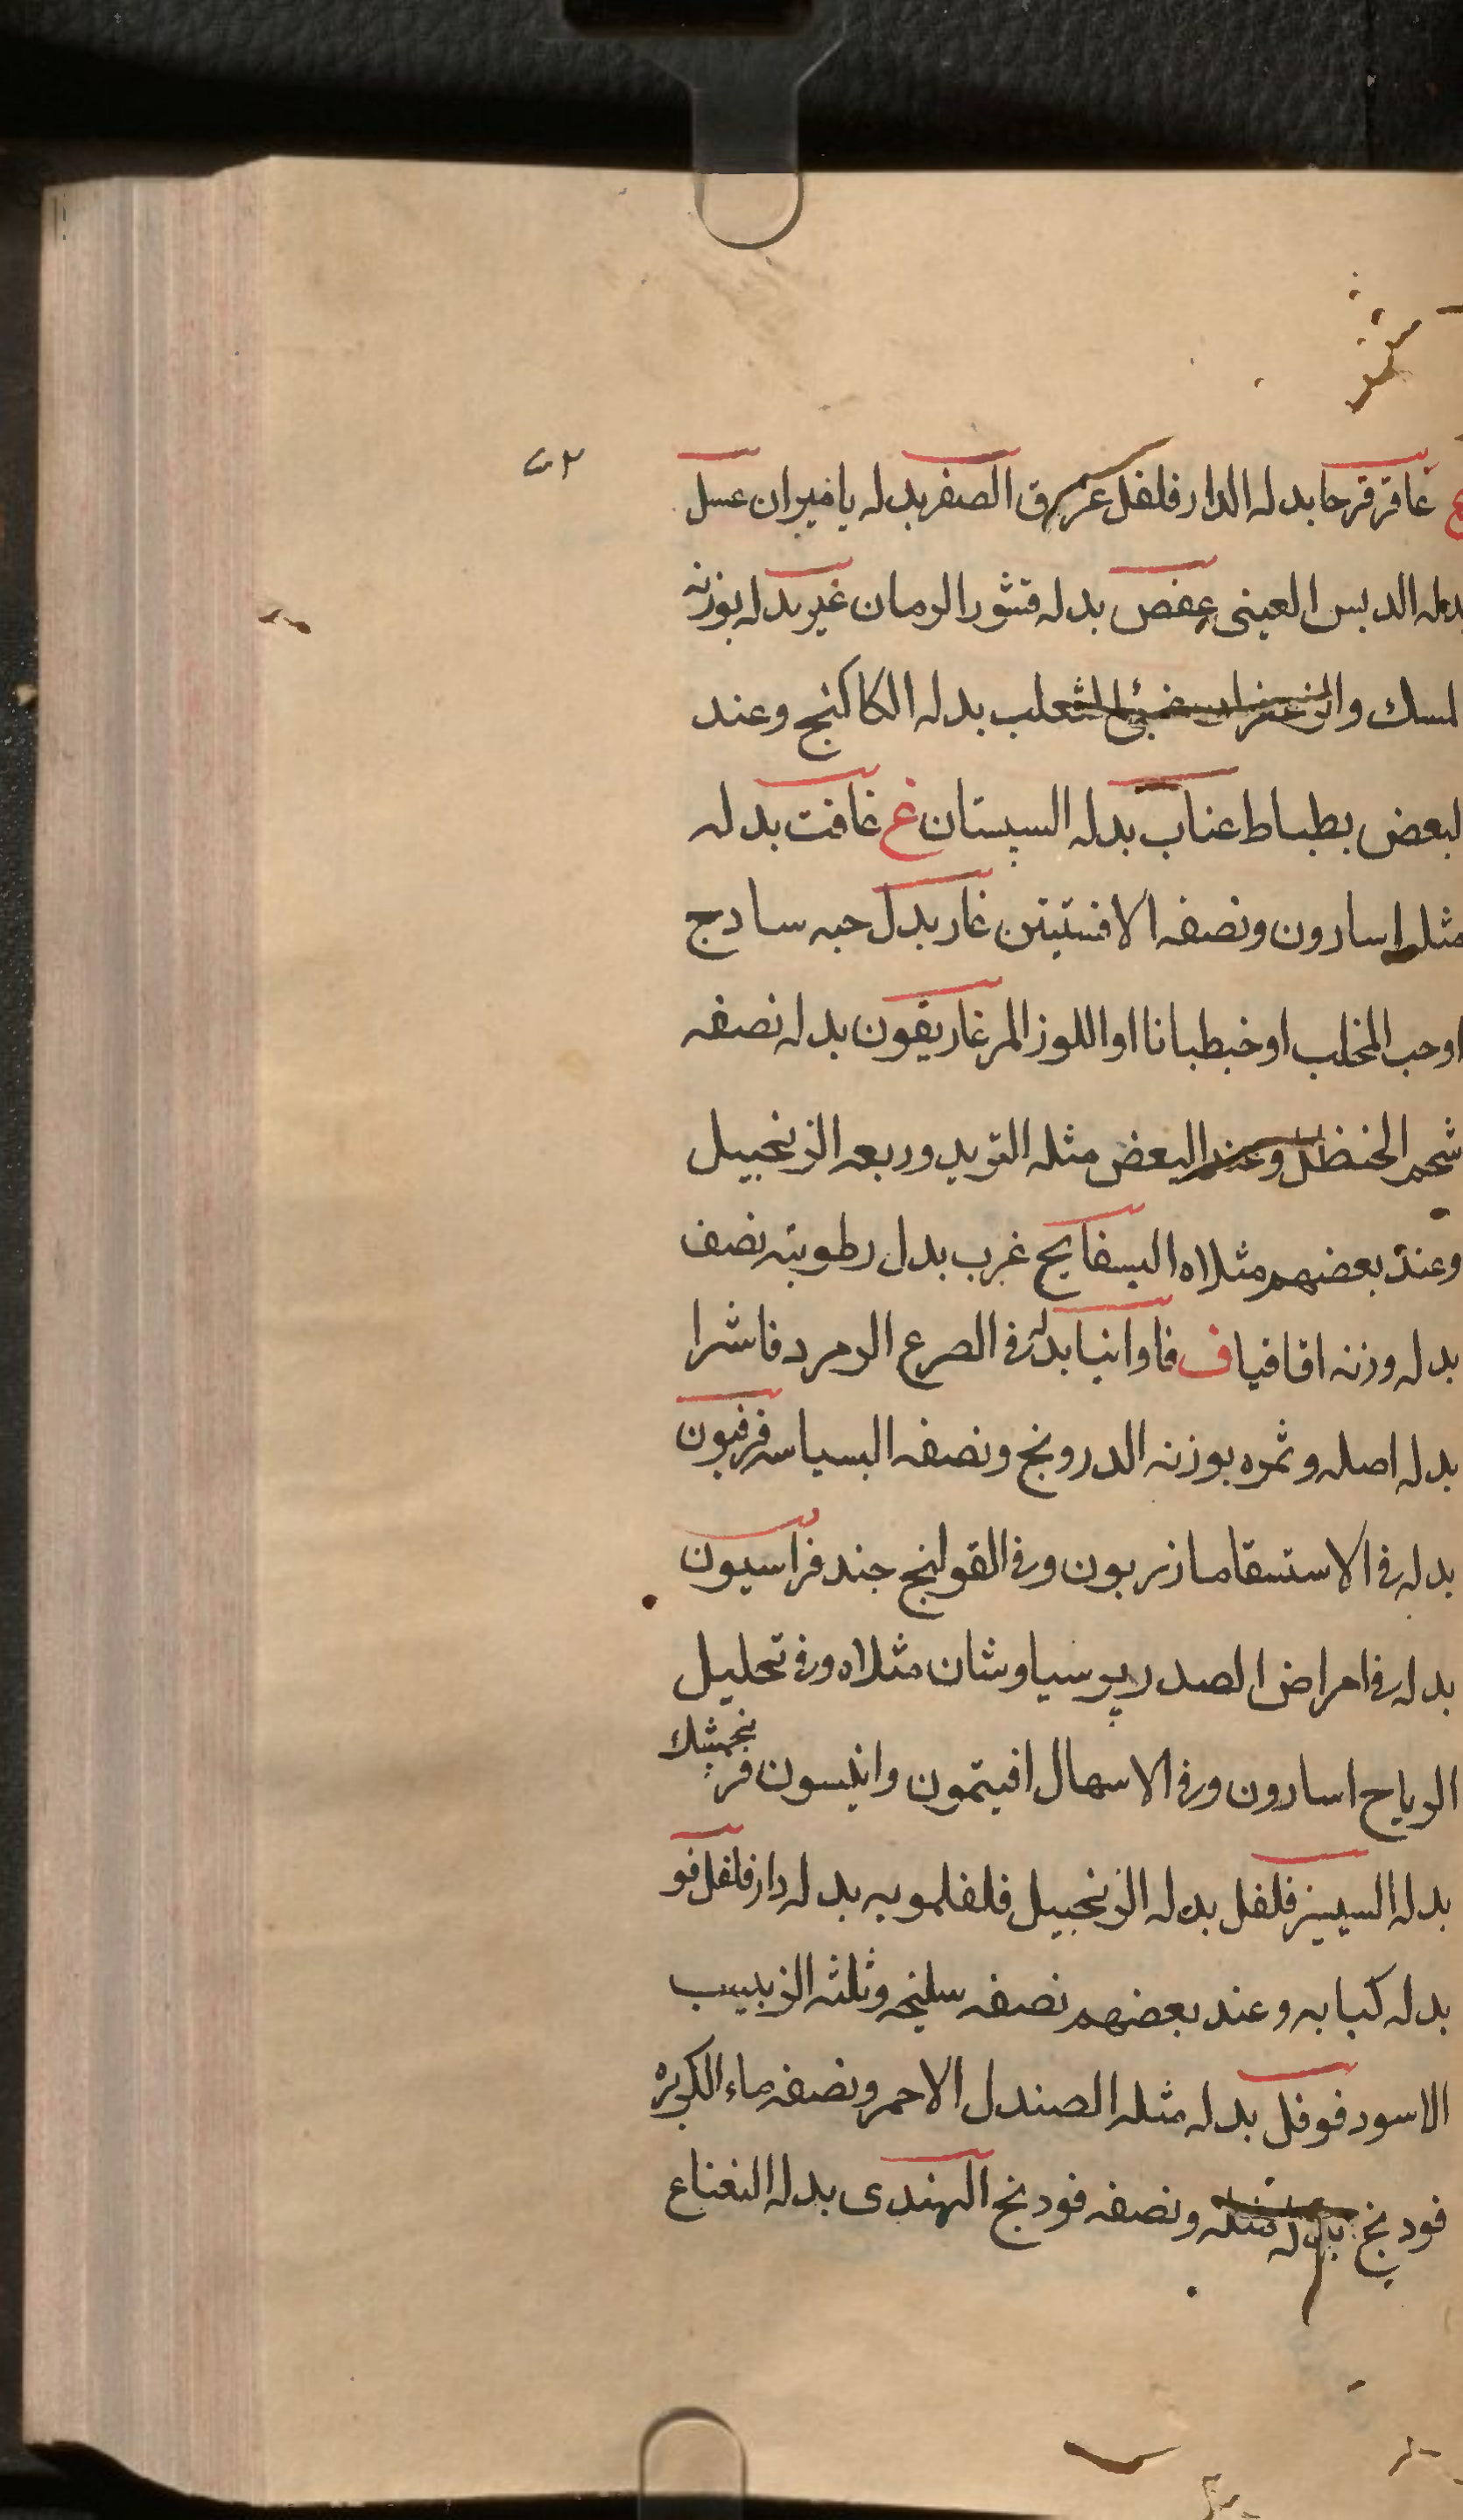 ٧٢
ع عاقرقرحا بدله الدارفلفل عرق الصفر بدله ياميران عسل
بدله الدبس العينى عفص بدله قشور الرمان غير بدله بوزنه
لمسك والزعفران الثعلب بدله الكاكنج وعند
لبعض بطباط عناب بدله السپستان غ غافت بدله
مثله اسارون ونصفه الافسنتين غار بدل حبه سادج
اوحب المخلب اوخبطبانا اواللوز المر غاريقون بدله نصفه
شحم الحنظل وعند البعض مثله التربد وربعه الزنجبيل
وعند بعضهم مثلاه البسفايج غرب بدل رطوبته نصف
بدله وزنه اقاقيا ف فاوانيا بدله فى الصرع الزمرد فاشرا
بدله اصله وثمره بوزنه الدرونج ونصفه البسباسه فرفيون
بدله فى الاستسقا مازريون وفى القولنج جند فراسيون
بدله فى امراض الصدر پرسياوشان مثلاه وفى تحليل
الرياح اسارون وفى الاسهال افيتمون وانيسون فرنجمشك
بدله السيسنبر فلفل بدله الزنجبيل فلفلمويه بدله دارفلفل فو
بدله كبابه وعند بعضهم نصفه سليخه وثلثه الزبيب
الاسود فوفل بدله مثله الصندل الاحمر ونصفه ماء الكزبره
فودنج بدله مثله ونصفه فودنج الهندى بدله النعناع